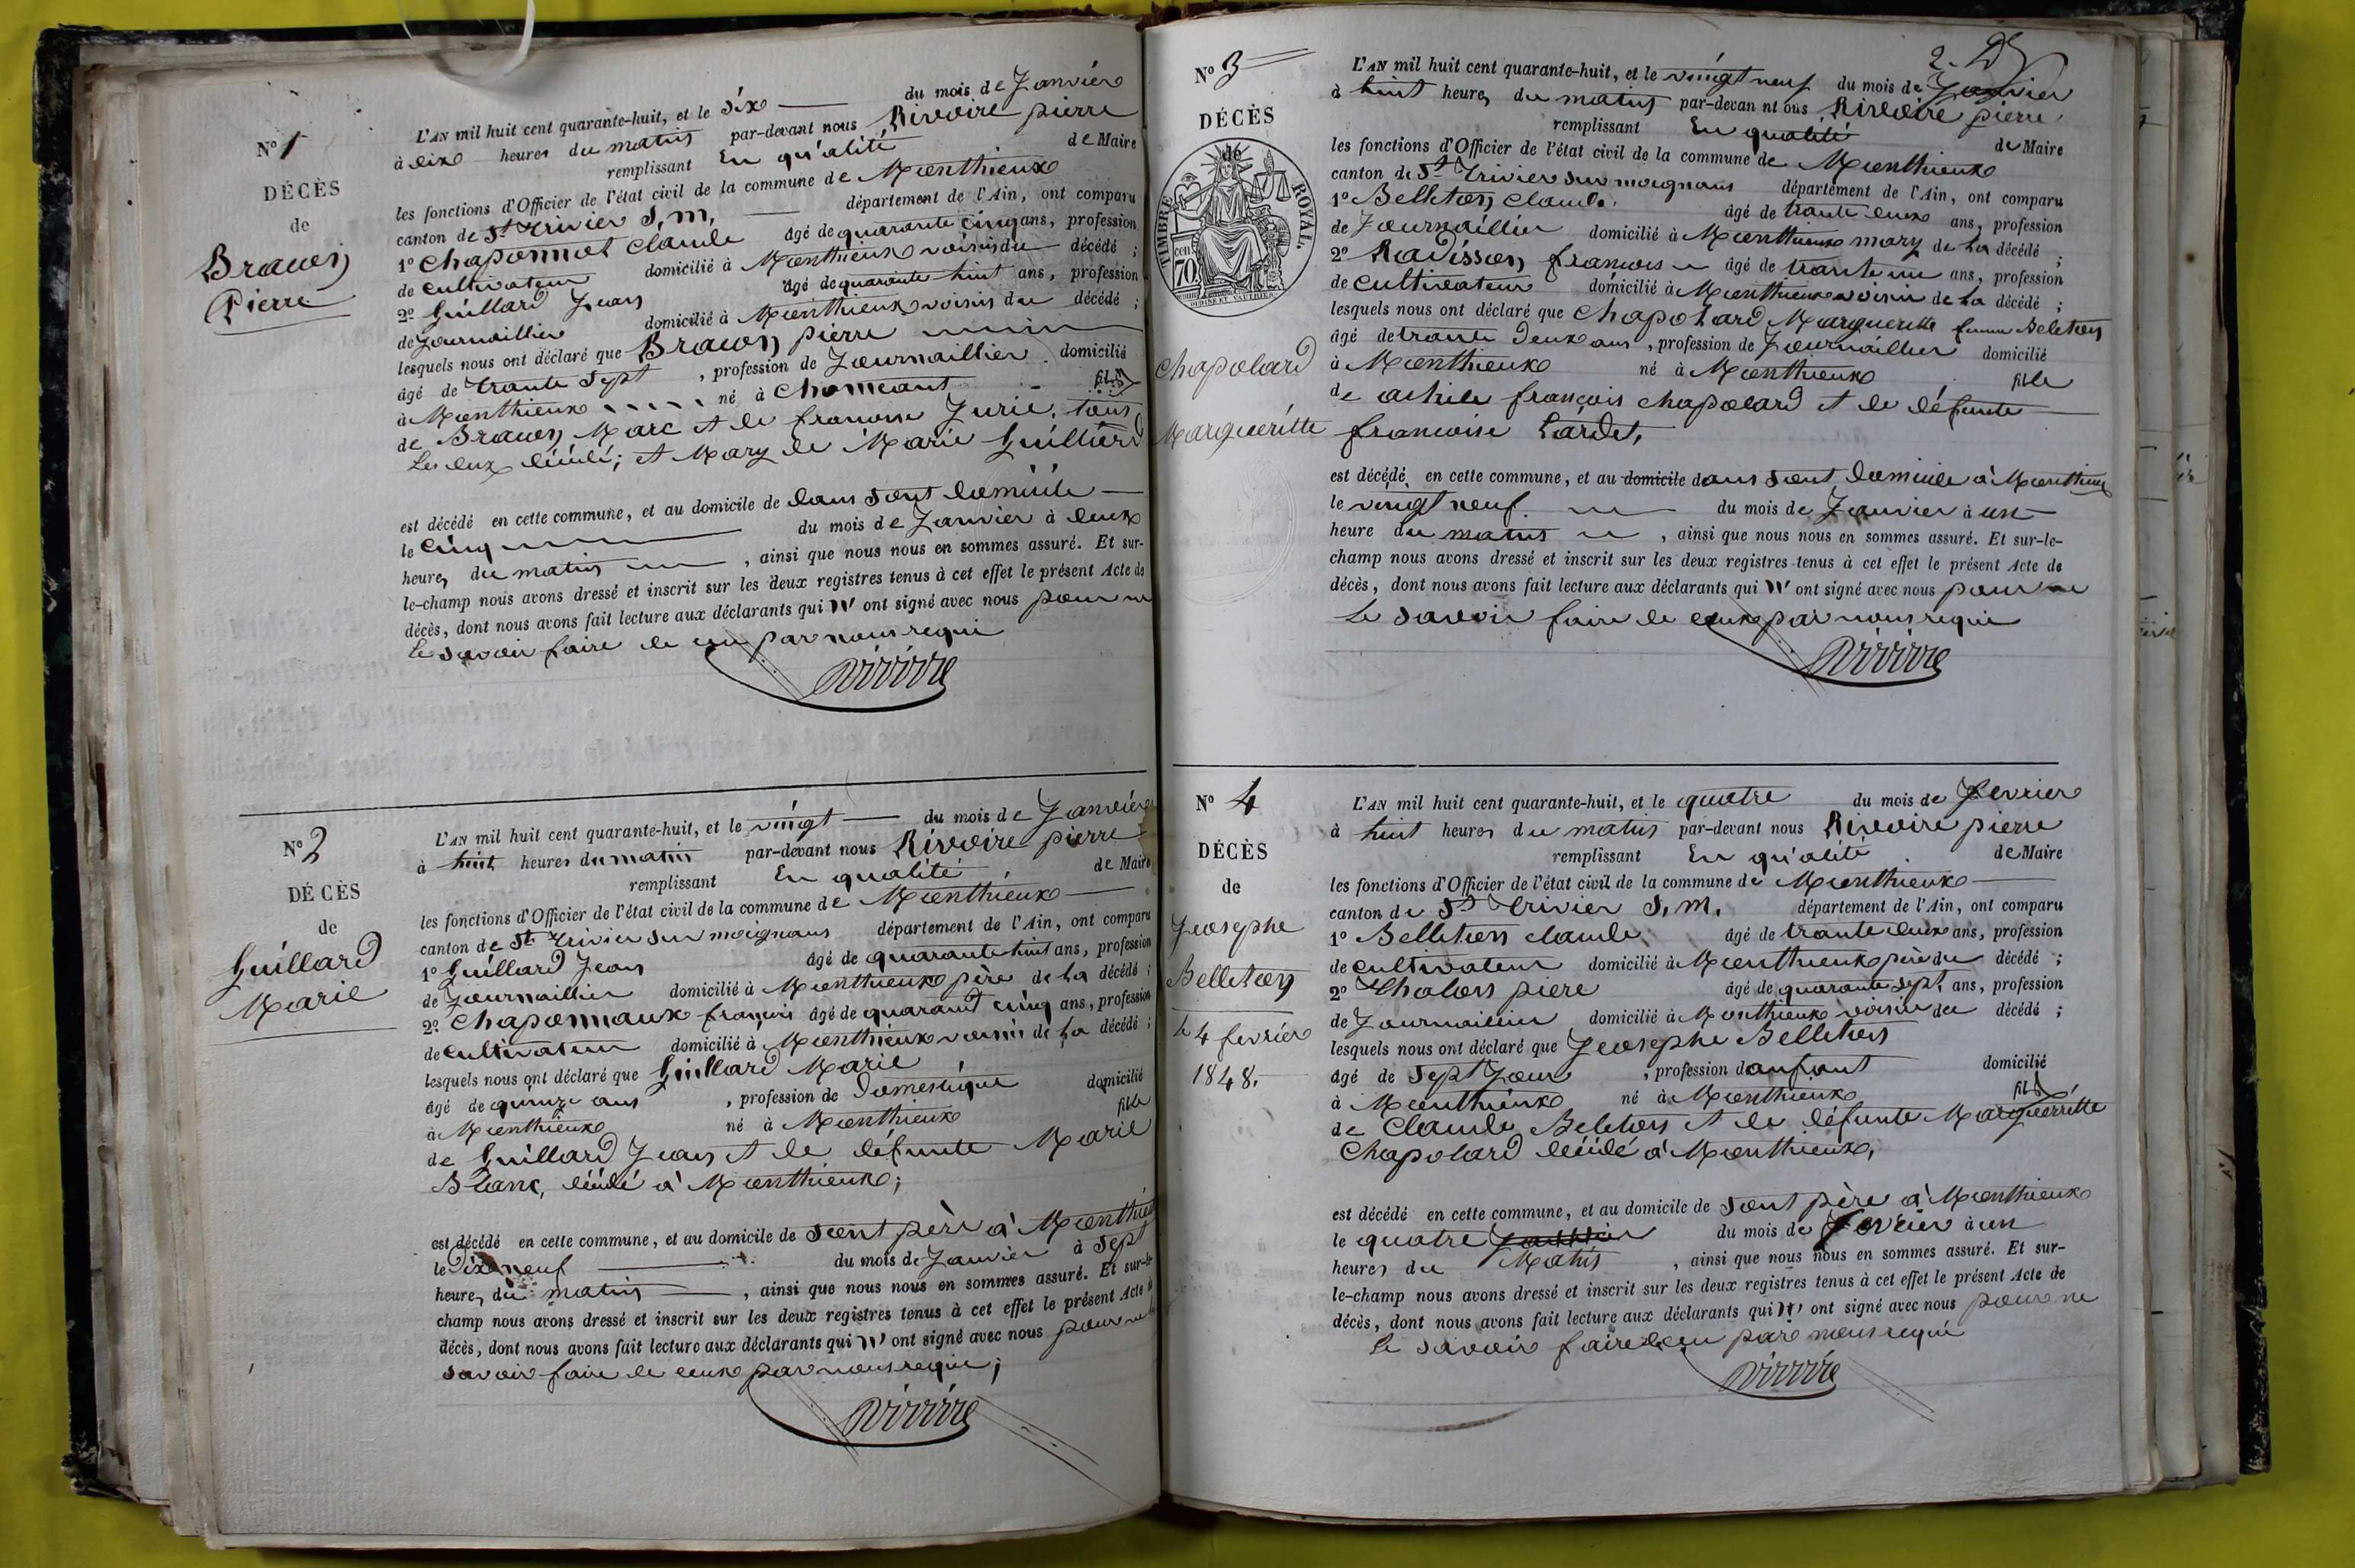 N° 1
DÉCÈS
de
Bracon
Pierre
L'AN mil huit cent quarante-huit, et le six du mois de Janvier
à dix heures du matin par-devant nous Rivoire pierre
remplissant En qu'alité de Maire
les fonctions d'Officier de l'état civil de la commune de Monthieux
canton de St Trivier S. m, département de l'Ain, ont comparu
1° Chaponnot Claude âgé de quarante cinq ans, profession
de cultivateur domicilié à Monthieux voisin du décédé ;
2° Guillard Jean âgé de quarante huit ans, profession
de Journaillier domicilié à Monthieux voisin du décédé ;
lesquels nous ont déclaré que Bracon pierre
âgé de trante sept , profession de Journaillier domicilié
à Monthieux né à Chaneant fils
de Bracon Marc et de francoise Jurie, tous
Les deux décédé; et Mary de Marie Guilliard
est décédé en cette commune, et au domicile de dans sont domicile
le cinq du mois de Janvier à deux
heures du matin , ainsi que nous nous en sommes assuré. Et sur-
le-champ nous avons dressé et inscrit sur les deux registres tenus à cet effet le présent Acte de
décès, dont nous avons fait lecture aux déclarants qui n' ont signé avec nous pour ne
le savoir faire de eux par nous requi
Rivoire
N° 2
DÉCÈS
de
Guillard
Marie
L'AN mil huit cent quarante-huit, et le vingt du mois de Janvier
à huit heures du matin par-devant nous Rivoire pierre
remplissant En qualité de Maire
les fonctions d'Officier de l'état civil de la commune de Monthieux
canton de St Trivier sur moignans département de l'Ain, ont comparu
1° Guillard Jean âgé de quarante huit ans, profession
de Journaillier domicilié à Monthieux père de La décédé ;
2° Chaponnaux françois âgé de quarant cinq ans, profession
de cultivateur domicilié à Monthieux voisin de La décédé ;
lesquels nous ont déclaré que Guillard Marie
âgé de quinze ans , profession de Domestique domicilié
à Monthieux né à Monthieux fille
de Guillard Jean et de défunte Marie
Blanc, décédé à Monthieux;
est décédé en cette commune, et au domicile de sont père à Monthieux
le Dix neuf du mois de Janvier à sept
heures du matin , ainsi que nous nous en sommes assuré. Et sur-le-
champ nous avons dressé et inscrit sur les deux registres tenus à cet effet le présent Acte de
décès, dont nous avons fait lecture aux déclarants qui n' ont signé avec nous pour ne
savoir faire de eux par nous requi;
Rivoire
2.
N° 3
DÉCÈS
de
TIMBRE ROYAL.
70
Chapolard
Margueritte
L'AN mil huit cent quarante-huit, et le vingt neuf du mois de Janvier
à huit heures du matin par-devan nt ous Rivoire pierre
remplissant En qualité de Maire
les fonctions d'Officier de l'état civil de la commune de Monthieux
canton de St Trivier sur moignans département de l'Ain, ont comparu
1° Belleton Claude. âgé de trante deux ans, profession
de Journaillier domicilié à Monthieux mary de La décédé ;
2° Radisson francois âgé de trante un ans, profession
de cultivateur domicilié à Monthieux voisin de La décédé ;
lesquels nous ont déclaré que Chapolard Margueritte femme Beleton
âgé de trante Deux ans , profession de Journaillier domicilié
à Monthieux né à Monthieux fille
de achile françois chapolard et de défunte
francoise Lardet,
est décédé en cette commune, et au domicile dans sont domicile à Monthieux
le vingt neuf. du mois de Janvier à un
heure du matin , ainsi que nous nous en sommes assuré. Et sur-le-
champ nous avons dressé et inscrit sur les deux registres tenus à cet effet le présent Acte de
décès, dont nous avons fait lecture aux déclarants qui n' ont signé avec nous pour ne
le savoir faire de eux par nous requi
Rivoire
N° 4
DÉCÈS
de
Jeosephe
Belleton
Le 4 fevrier
1848.
L'AN mil huit cent quarante-huit, et le quatre du mois de fevrier
à huit heures du matin par-devant nous Rivoire pierre
remplissant En qu'alité de Maire
les fonctions d'Officier de l'état civil de la commune de Monthieux
canton de St Trivier S. m. département de l'Ain, ont comparu
1° Belleton claude. âgé de trante deux ans, profession
de cultivateur domicilié à Monthieux père du décédé ;
2° Chalon piere âgé de quarante sept ans, profession
de Journaillier domicilié à Monthieux voisin du décédé ;
lesquels nous ont déclaré que Jeosephe Belleton
âgé de sept Jour , profession d'anfant domicilié
à Monthieux né à Monthieux fils
de Claude Beleton et de défunte Marguerritte
Chapolard décédé à Monthieux,
est décédé en cette commune, et au domicile de sont père à Monthieux
le quatre du mois de fevrier à un
heures du Matin , ainsi que nous nous en sommes assuré. Et sur-
le-champ nous avons dressé et inscrit sur les deux registres tenus à cet effet le présent Acte de
décès, dont nous avons fait lecture aux déclarants qui n' ont signé avec nous pour ne
le savoir faire de eu par nous requi
Rivoire